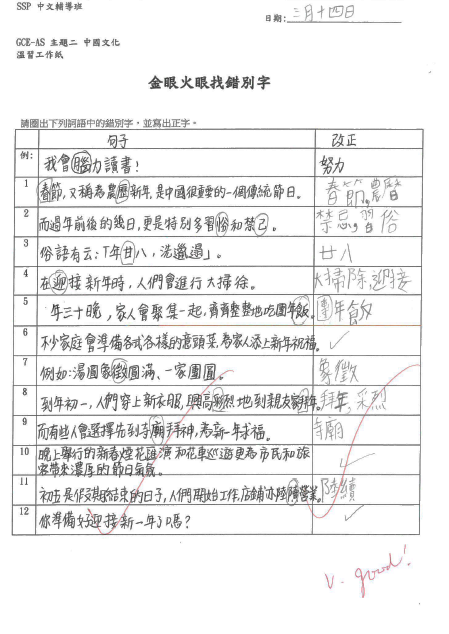 SSP 中文輔導班
日期: 三月十四日
GCE-AS 主題二 中國文化
溫習工作紙
金眼火眼找錯別字
請圈出下列詞語中的錯別字，並寫出正字。
句子 改正
例: 我會腦力讀書! 努力
1 春節,又稱為農曆新年,是中國很重要的一個傳統節日。 春節,農曆
2 而過年前後的幾日,更是特別多習俗和禁忌。 禁忌 習俗
3 俗語有云:「年廿八,洗邋遢」。 廿八
4 在迎接新年時,人們會進行大掃徐。 大掃除,迎接
5 年三十晚,家人會聚集一起,齊齊整整地吃團年飯。 團年飯
6 不少家庭會準備各式各樣的意頭菜,為家人添上新年祝福。
7 例如:湯圓象徵圓滿、一家團圓。 象徵
8 到年初一,人們穿上新衣服,興高彩烈地到親友家拜年。 拜年,采烈
9 而有些人會選擇先到寺廟拜神,為新一年求福。 寺廟
10 晚上舉行的新春煙花匯演和花車巡遊更為市民和旅
客帶來濃厚的節日氣氛。
11 初五是假期結束的日子,人們開始工作,店鋪亦陸續營業。 陸續
12 你準備好迎接新一年了嗎?
v. good!